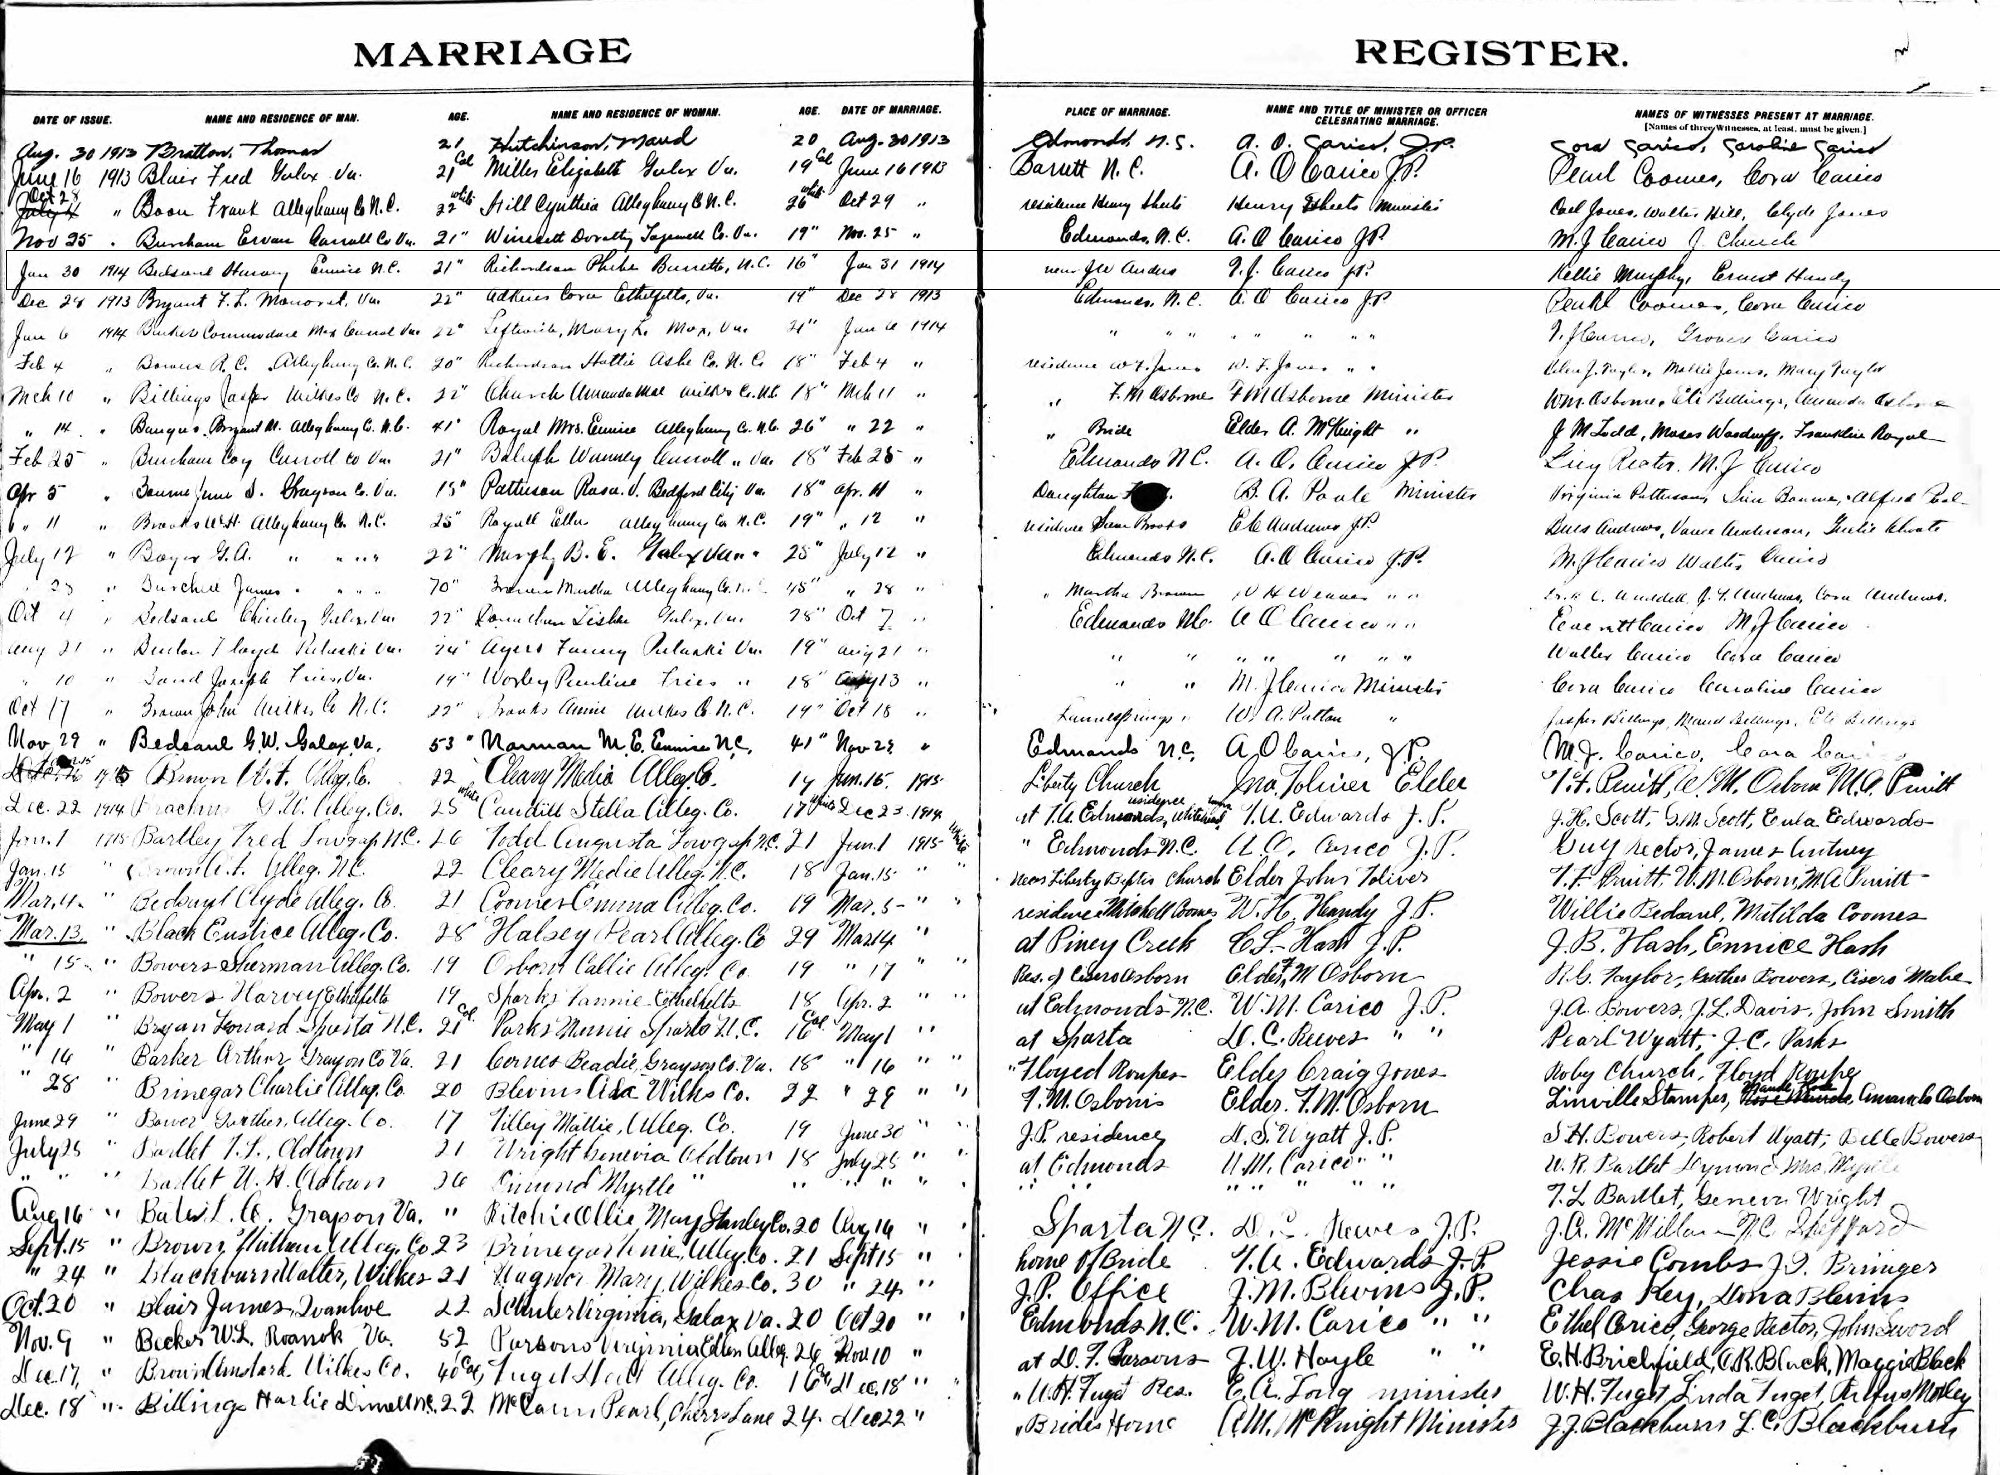 MARRIAGE REGISTER.
DATE OF ISSUE. NAME AND RESIDENCE OF MAN. AGE. NAME AND RESIDENCE OF WOMAN. AGE. DATE OF MARRIAGE. PLACE OF MARRIAGE. NAME AND TITLE OF MINISTER OR OFFICER CELEBRATING MARRIAGE. NAMES OF WITNESSES PRESENT AT MARRIAGE.
[Names of three Witnesses, at least, must be given.]
Aug. 30 1913 Britton, Thomas 21 Hutchinson, Maud 20 Aug. 30 1913 Edmonds, N.C. A. O. Carico, J.P. Cora Carico, Caroline Carico
June 16 1913 Blair Fred Galax Va. 21 Col Miller Elizabeth Galax Va. 19 Col June 16 1913 Barrett N.C. A. O Carico J.P. Pearl Coomes, Cora Carico
Oct 28 July 4 " Boon Frank Alleghany Co N.C. 22 white Hill Cynthia Alleghany Co N.C. 26 white Oct 29 " residence Henry Sheets Henry Sheets Minister Carl Jones, Walter Hill, Clyde Jones
Nov 25 " Burcham Ervan Carroll Co Va. 21 " Dorothy Tazewell Co. Va. 19 " Nov. 25 " Edmonds, N.C. A. O Carico J.P. M. J Carico J. Church
Jan 30 1914 Bedsaul Harvey Ennice N.C. 21 " Richardson Phebe Barretts, N.C. 16 " Jan 31 1914 near JW Anders T. J. Carico J.P. Kellie Murphy, Ernest Handy
Dec 28 1913 Bryant F. L. Monorat, Va. 22 " Adkins Cora Ethelfelts, Va. 19 " Dec 28 1913 Edmonds, N.C. A O Carico J.P. Pearl Coomes, Cora Carico
Jan 6 1914 Commodore Max Carroll Va. 22 " Leftwich, Mary L. Max, Va. 21 " Jan 6 1914 " " " " " " " T. J Carico, Grover Carico
Feb 4 " Bowers R. C. Alleghany Co. N.C. 20 " Richardson Hattie Ashe Co. N.C. 18 " Feb 4 " residence W F. Jones W. F. Jones " " J. Taylor, Mollie Jones, Mary Taylor
Mch 10 " Billings Jasper Wilkes Co N.C. 22 " Church Amanda Mae Wilkes Co. N.C. 18 " Mch 11 " " F. M Osborne F M Osborne Minister Wm. Osborne, Eli Billings, Amanda Osborne
" 14 " Bryant M. Alleghany Co. N.C. 41 " Royal Mrs. Eunice Alleghany Co. N.C. 26 " " 22 " " Bride Elder A. McKnight " J M Todd, Moses Woodruff, Franklin Royal
Feb 25 " Burcham Coy Carroll Co Va. 21 " Wunney Carroll " Va. 18 " Feb 25 " Edmonds N.C. A. O. Carico J.P. Rector, M. J Carico
Apr 5 " Bourne June S. Grayson Co. Va. 18 " Patterson Rosa V. Bedford City Va. 18 " Apr. 11 " Daughton B. A. Poole Minister Virginia Patterson, Bourne, Alfred
" 11 " Brooks W.H. Alleghany Co. N.C. 25 " Royall Ella Alleghany Co. N.C. 19 " " 12 " residence Brooks E C Andrews J.P. Andrews, Vance Anderson, Choate
July 12 " Boyer G. A. " " " " 22 " Murphy B. E. Galax Va. " 25 " July 12 " Edmonds N.C. A. O Carico J.P. M. J Carico Walter Carico
" 23 " Burchell James " " " " 70 " Brown Martha Alleghany Co. N.C. 45 " " 28 " " Martha Brown W H Weaver " " Cora Andrews.
Oct 4 " Bedsaul Chiniley Galax, Va. 22 " Galax, Va. 28 " Oct 7 " Edmonds N.C. A O Carico " " Everett Carico M. J Carico
Aug 21 " Floyd Pulaski Va. 24 " Ayers Fanny Pulaski Va. 19 " Aug 21 " " " " " " " " Walter Carico Cora Carico
" 10 " Joseph Fries, Va. 19 " Worley Pauline Fries " 18 " Aug 13 " " " M. J Carico Minister Cora Carico Caroline Carico
Oct 17 " Brown John Wilkes Co N.C. 22 " Brooks Annie Wilkes Co. N.C. 19 " Oct 18 " W. A. Patton " Jasper Billings, Maud Billings, Eli Billings
Nov. 29 " Bedsaul G.W. Galax Va. 53 " Norman M. E. Ennice N.C. 41 " Nov 29 " Edmonds N.C. A. O Carico, J.P. M. J. Carico, Cora Carico
Brown W. F. Alleg. Co. 22 Cleary Media Alleg. Co. 19 Jan. 15. 1915 Liberty Church Jno. Toliver Elder T. F. Pruitt, W. M. Osborn M. A. Pruitt
Dec. 22 1914 G. W. Alleg. Co. 25 white Caudill Stella Alleg. Co. 17 white Dec 23 1914 at T. A Edwards residence, Whitehead T. A. Edwards J. P. J. H. Scott, G. M. Scott, Eula Edwards
Jan. 1 1915 Bartley Fred Lowgap N.C. 26 Todd Augusta Lowgap N.C. 21 Jan. 1 1915 White " Edmonds N.C. A. O. Carico J. P. Guy Rector, James Antney
Jan. 15 " Brown A. F. Alleg. N.C. 22 Cleary Medie Alleg. N.C. 18 Jan. 15 " " Near Liberty Baptis Church Elder John Toliver T. F. Pruitt, W. M Osborn, M. A Pruitt
Mar. 4 " Bedsaul Clyde Alleg. Co. 21 Coomes Emma Alleg. Co. 19 Mar. 5 " " residence Mitchell Coomes W. H. Handy J. P. Willie Bedsaul, Matilda Coomes
Mar. 13 " Black Eustice Alleg. Co. 28 Halsey Pearl Alleg. Co 29 Mar 14 " at Piney Creek C L. Hash J. P. J. B. Hash, Ennice Hash
" 15 " Bowers Sherman Alleg. Co. 19 Osborn Callie Alleg. Co. 19 " 17 " " Res. of Cisero Osborn Elder F. M Osborn R. G. Taylor, Luther Bowers, Cisero Mabe
Apr. 2 " Bowers Harvey Ethelfelts 19 Sparks Fannie Ethelfelts 18 Apr. 2 " " at Edmonds N.C. W. M. Carico J. P. J. A. Bowers, J. L. Davis, John Smith
May 1 " Bryan Leonard Sparta N.C. 21 Col. Parks Minnie Sparta N.C. 16 Col. May 1 " at Sparta D. C. Reeves " " Pearl Wyatt, J. C. Parks
" 16 " Parker Arthur Grayson Co Va. 21 Cornes Beadie, Grayson Co. Va. 18 " 16 " " " Floyed Roupes Elder Craig Jones Roby Church, Floyd Roupe
" 28 " Brinegar Charlie Alleg. Co. 20 Blevins Ada Wilks Co. 22 " 29 " " F. M. Osborns Elder. F. M. Osborn Linville Stamper, Maude Rose, Amanda Osborn
June 29 " Bower Luther, Alleg. Co. 17 Tilley Mattie, Alleg. Co. 19 June 30 " " J. P. residence D. S. Wyatt J. P. S. H. Bowers, Robert Wyatt, Belle Bowers
July 25 " Bartlet T. L., Oldtown 21 Wright Genevia Oldtown 18 July 25 " " at Edmonds W. M. Carico " " W. R. Bartlet Mrs. Myrtle
" " " Bartlet W. R. Oldtown 26 Myrtle " " " " " " " " " " " T. L Bartlet, Geneva Wright
Aug 16 " Bates L. C. Grayson Va. " Ritchie Ollie, Mary Stanley Co. 20 Aug 16 " " Sparta N.C. D. C. Reeves J. P. J. A. McMillan N. C. Shepford
Sept. 15 " Brown, William Alleg. Co 23 Brinegar Alleg. Co. 21 Sept 15 " " home of Bride T. A. Edwards J. P. Jessie Combs J. T. Briniger
" 24 " Blackburn Walter, Wilkes 21 Wagner Mary Wilkes Co. 30 " 24. " " J. P. Office J. M. Blevins J. P. Chas Key, Dona Blevins
Oct. 20 " Blair James, Ivanhoe 22 Virginia, Galax Va. 20 Oct 20 " " Edmonds N.C. W. M. Carico " " Ethel Carico, George Rector, John Sword
Nov. 9 " Becker W. L. Roanok Va. 52 Parsons Virginia Ellen Alleg. 26 Nov 10 " at D. F. Parsons J. W. Hoyle " " E. H. Brichfield, C. R. Black, Maggie Black
Dec. 17, " Brown Wilkes Co. 40 Col. Fuget Alleg. Co. 16 Col Dec. 18 " " " W. H. Fuget Res. E. A. Long minister W. H. Fuget, Linda Fuget, Rufus Motley
Dec. 18 " Billings Harlie Dimett N.C. 22 McCann Pearl, Cherry Lane 24. Dec 22 " " Brides Home A. M. McKnight Minister J. J. Blackburn L. C. Blackburn